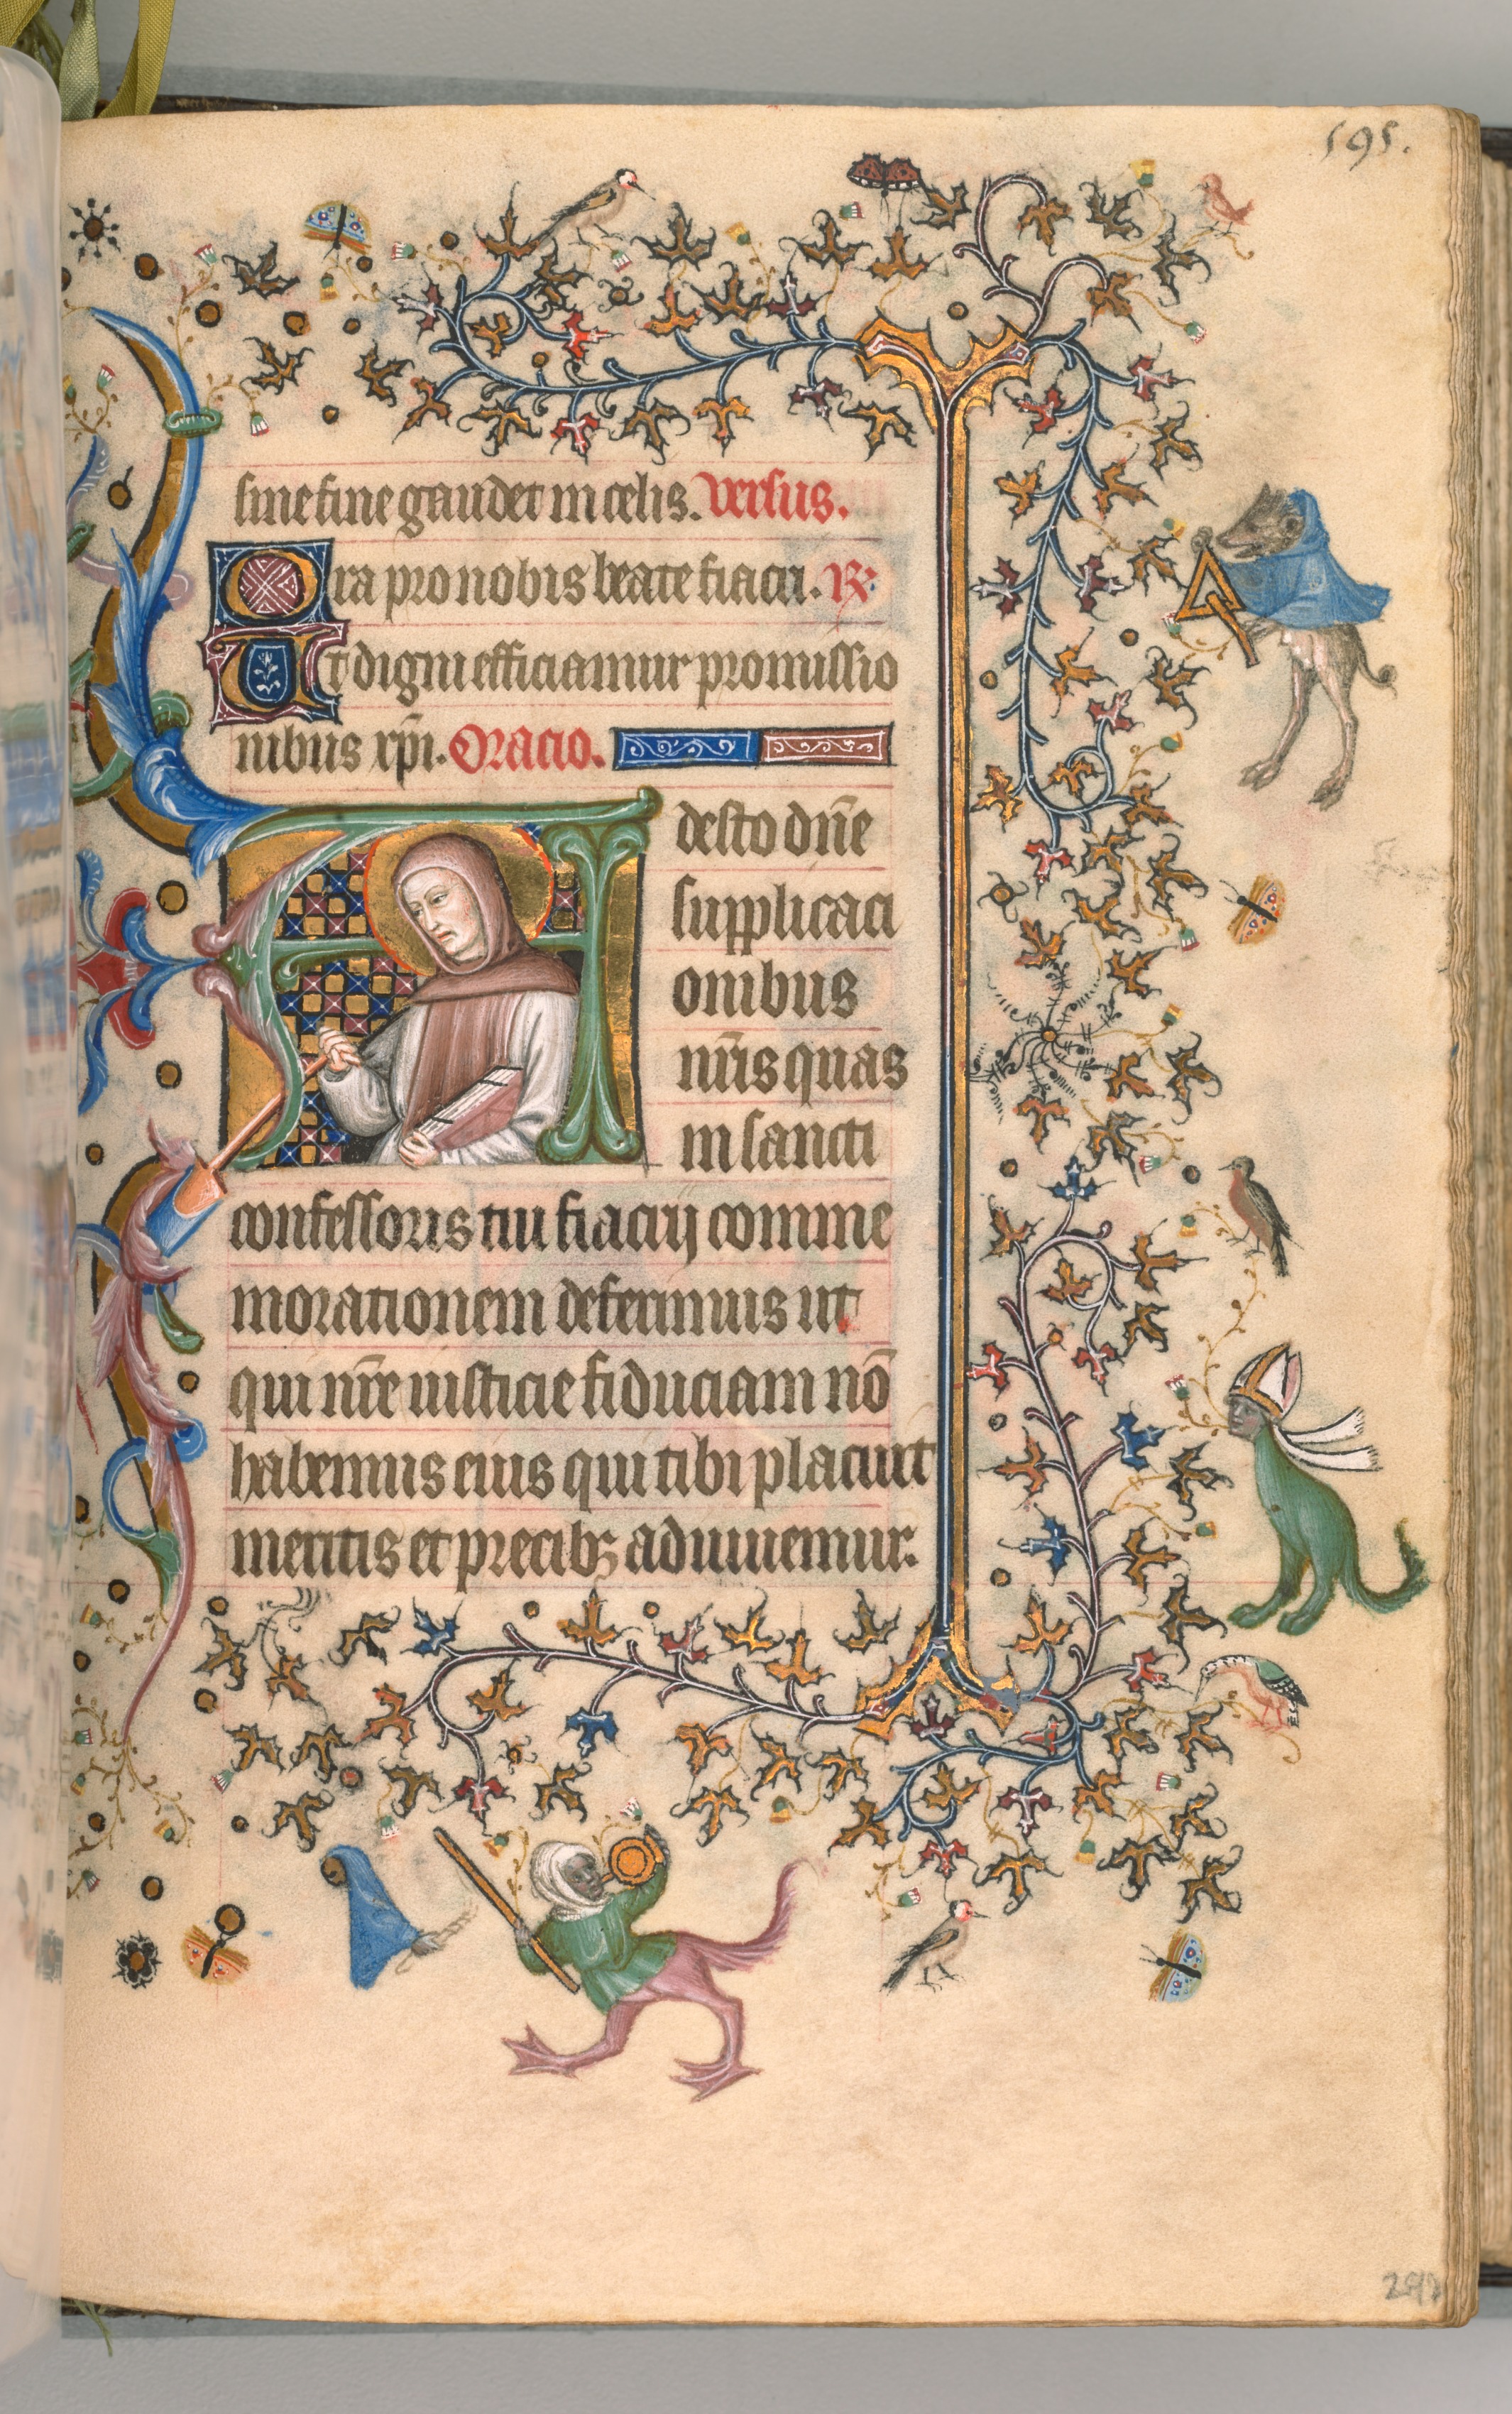 595.
sine fine gaudet in celis. Versus.
Ora pro nobis beate fiacri. R̃.
Ut digni efficiamur promissio
nibus xp̄i. Oracio.
Adesto dn̄e
supplicaci
onibus
nr̄is quas
in sancti
confessoris tui fiacrij comme
morationem deferimus ut
qui nr̄e iusticie fiduciam nō
habemus eius qui tibi placuit
meritis et precibꝫ adiuuemur.